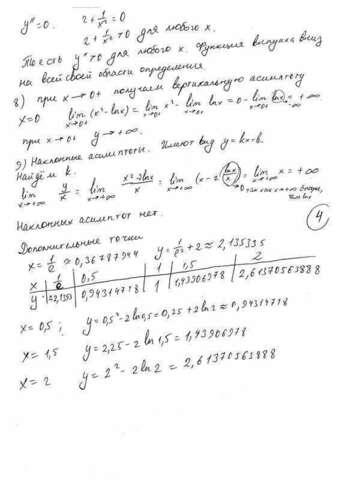 y''=0.   2+1/x²=0
2+1/x²>0 для любого x.
То есть y''>0 для любого x. Функция выпукла вниз
на всей своей области определения.
8) при x→0+ получаем вертикальную асимптоту
x=0   lim x→0+ (x²-lnx) = lim x→0+ x² - lim x→0+ lnx = 0 - lim x→0+ lnx = +∞
при x→0+ y→+∞.
9) Наклонные асимптоты. Имеют вид y=kx+b.
Найдём k.
lim x→+∞ y/x = lim x→+∞ (x²-2lnx)/x = lim x→+∞ (x-2 lnx/x) = lim x→+∞ x = +∞
→0, так как x→+∞
Наклонных асимптот нет.
4
Дополнительные точки
x=1/e≈0,36787944   y=1/e²+2≈2,135335
x | 1/e | 0,5 | 1 | 1,5 | 2
y | ≈2,135 | 0,94314718 | 1 | 1,43906978 | 2,61370563888
x=0,5;   y=0,5²-2ln0,5=0,25+2ln2≈0,94314718
x=1,5   y=2,25-2ln1,5=1,43906978
x=2   y=2²-2ln2=2,61370563888